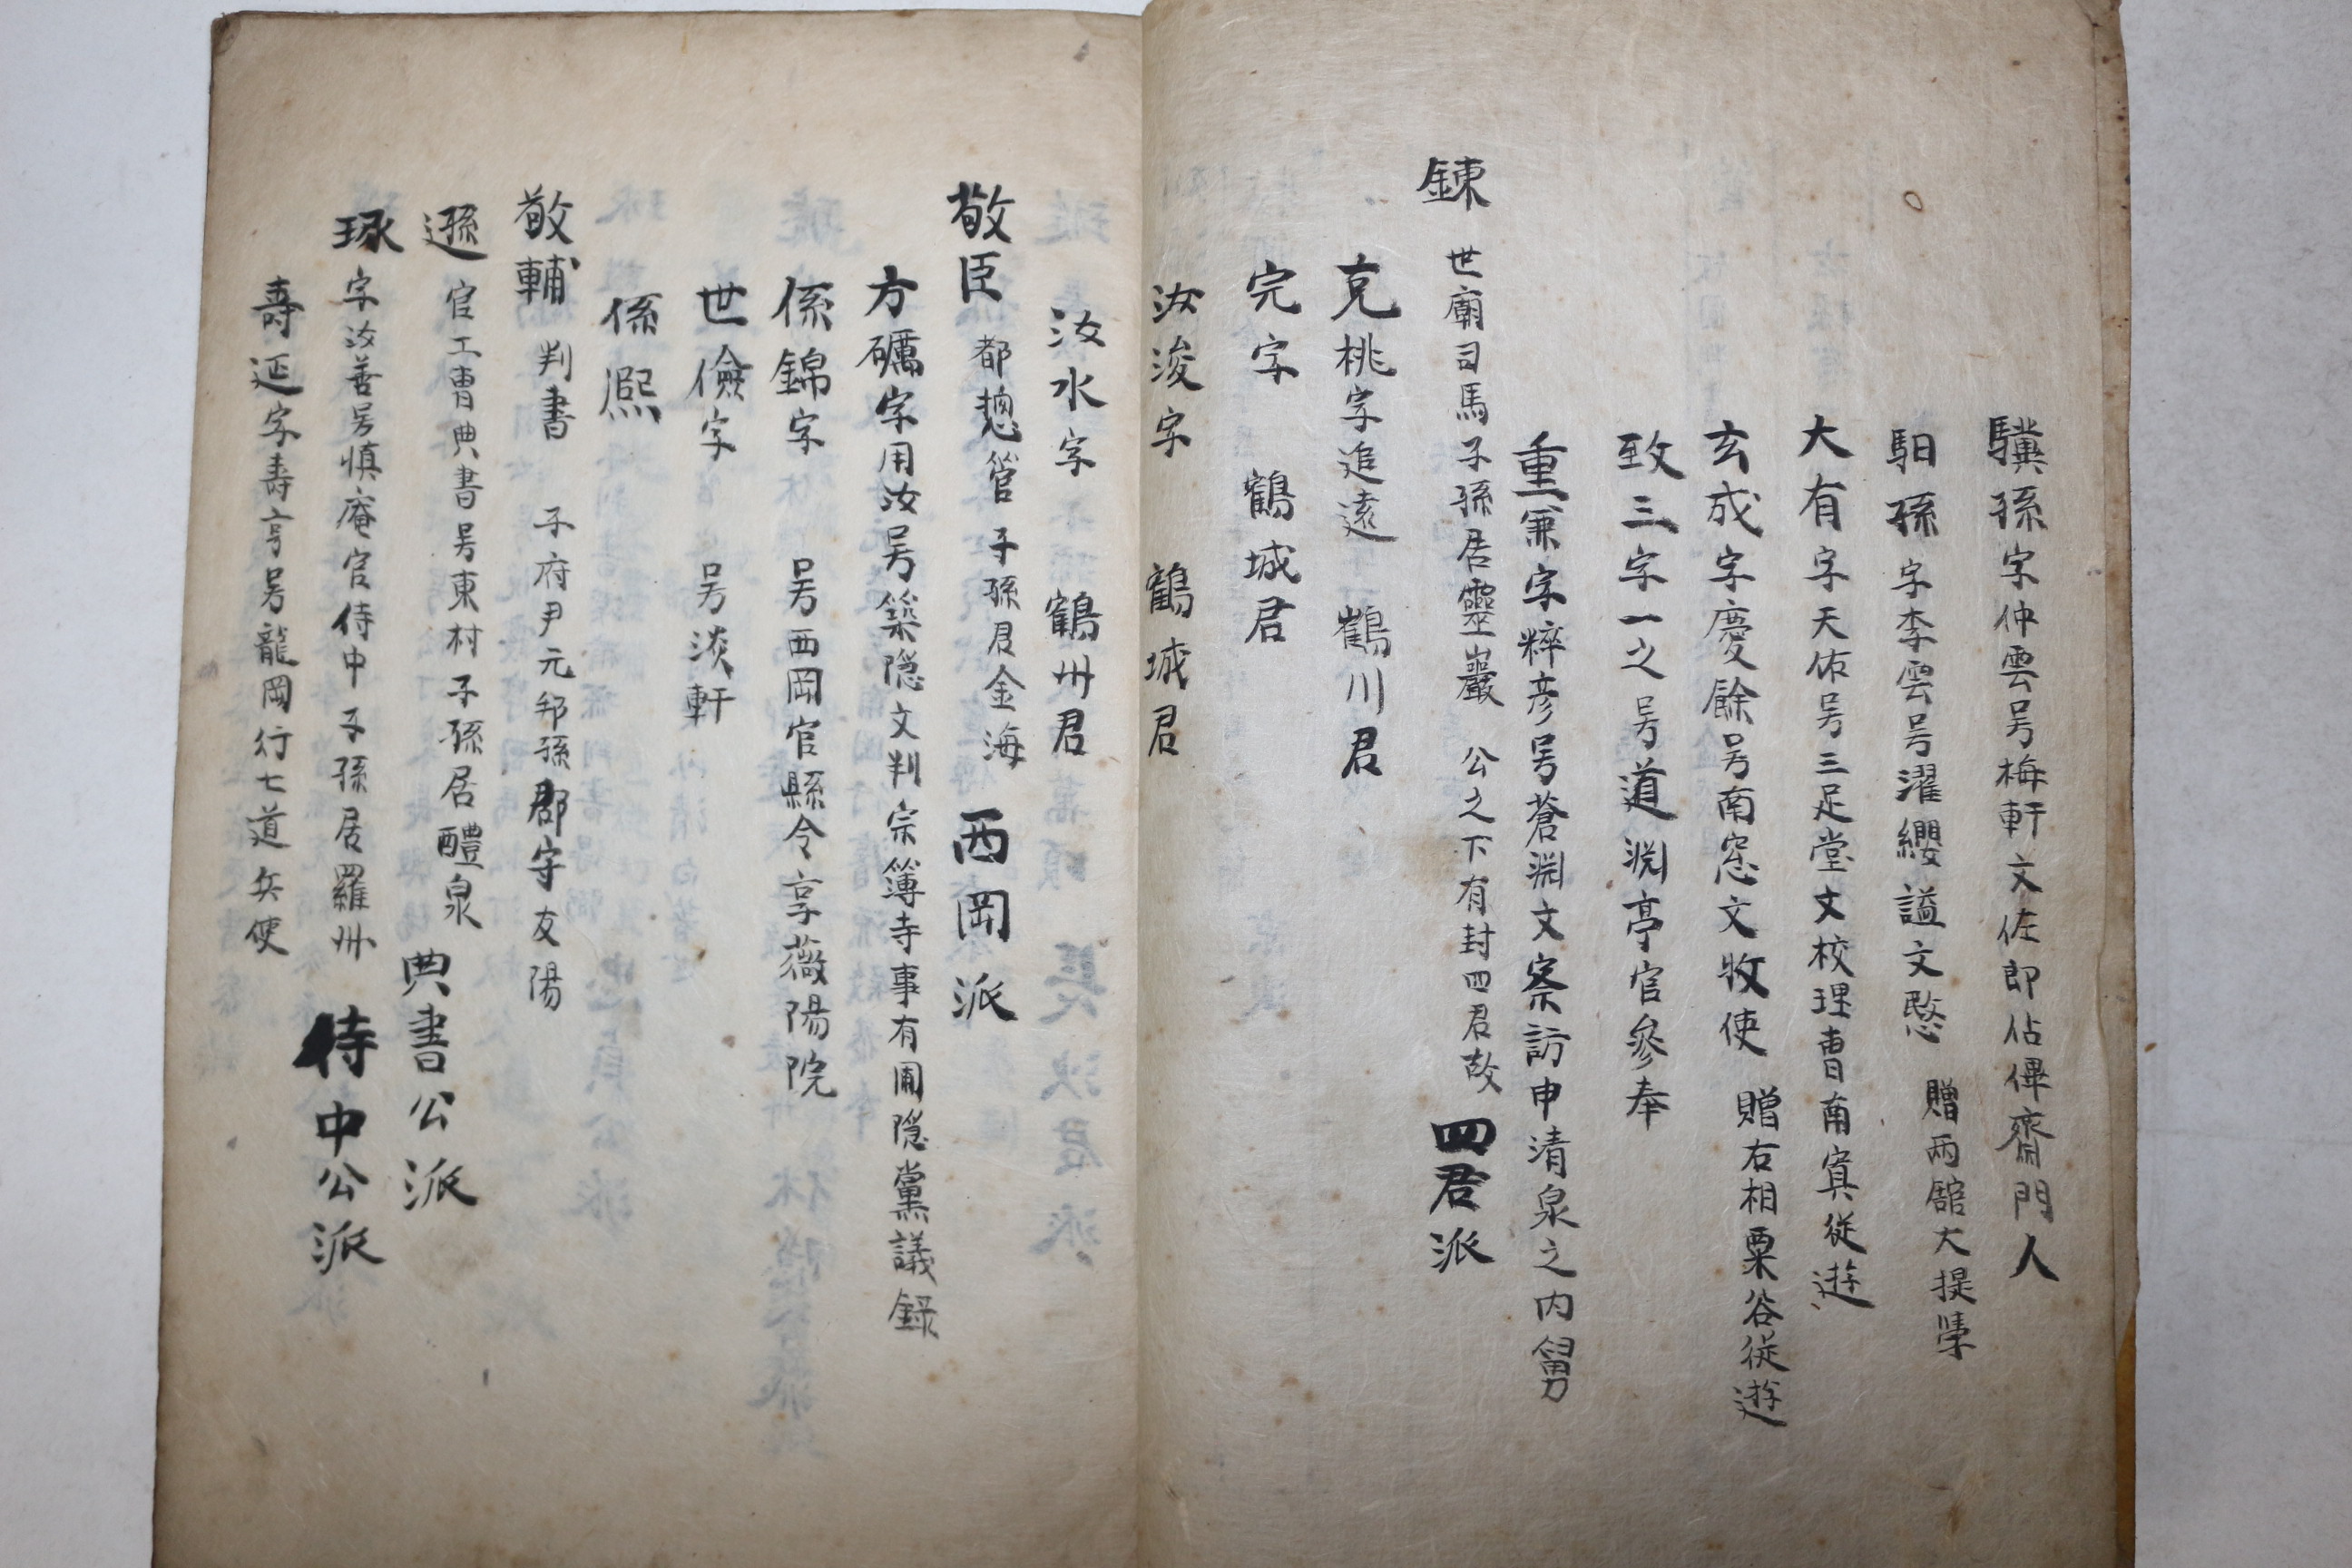 驥孫字仲雲号梅軒文佐郎佔俾齋門人
馹孫字季雲号濯纓謚文愍 贈兩舘大提學
大有字天佑号三足堂文校理曺南㝠從遊
玄成字慶餘号南窓文牧使 贈右相栗谷從遊
致三字一之号道渊亭官參奉
重兼字粹彦号蒼渊文察訪申清泉之内舅
鍊 世廟司馬子孫居靈巖 公之下有封四君故 四君派
克桃字追遠 鶴川君
完字 鶴城君
汝浚字 鶴城君
汝水字 鶴州君
敬臣 都摠管子孫居金海 西岡派
方礪字用汝号築隠文判宗簿寺事有圃隠黨議録
係錦字 号西岡官縣令享薇陽院
世儉字 号淡軒
係熙
敬輔 判書 子府尹元邦孫郡守友陽
遜 官工曺典書号東村子孫居醴泉 典書公派
琢 字汝善号慎庵官侍中子孫居羅州 侍中公派
壽延字壽亨号龍岡行七道兵使